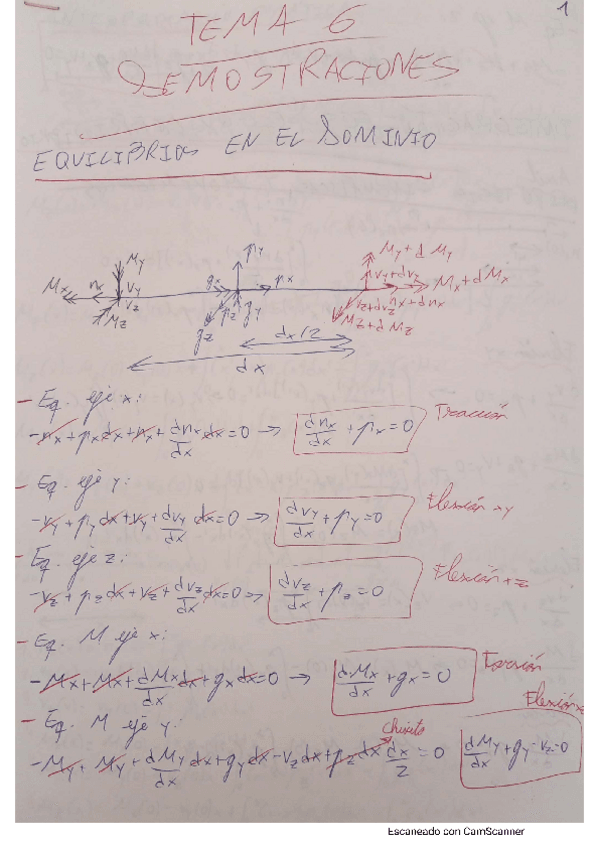 1
TEMA 6
DEMOSTRACIONES
EQUILIBRIO EN EL DOMINIO
My
Mx nx Vy
Vz
Mz
py
qx px
pz qy
qz
My + dMy
Vy+dVy Mx + dMx
Vz+dVz nx+dnx
Mz+dMz
dx/2
dx
- Eq. eje x:
-nx + px dx + nx + dnx/dx dx = 0 → dnx/dx + px = 0 Tracción
- Eq. eje y:
-Vy + py dx + Vy + dVy/dx dx = 0 → dVy/dx + py = 0 Flexión xy
- Eq. eje z:
-Vz + pz dx + Vz + dVz/dx dx = 0 → dVz/dx + pz = 0 Flexión xz
- Eq. M eje x:
-Mx + Mx + dMx/dx dx + qx dx = 0 → dMx/dx + qx = 0 Torsión
- Eq. M eje y: Flexión xz
-My + My + dMy/dx dx + qy dx - Vz dx + pz dx dx/2 = 0 dMy/dx + qy - Vz = 0
Escaneado con CamScanner